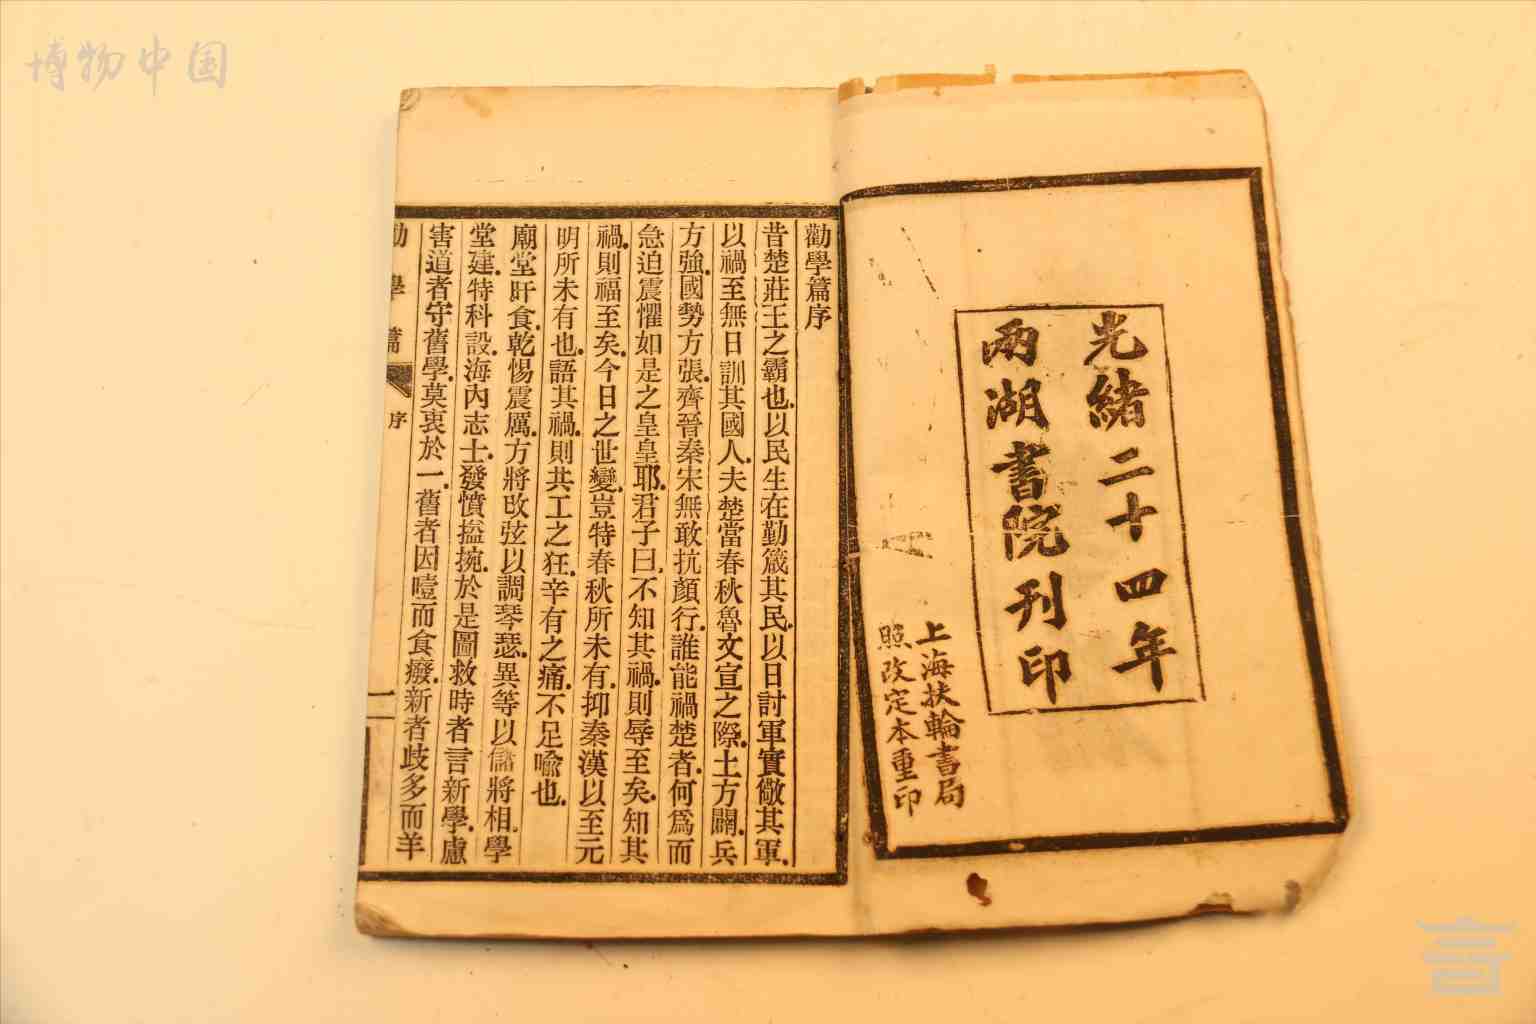 博物中国
光緒二十四年
兩湖書院刊印
上海扶輪書局
照改定本重印
勸學篇序
昔楚莊王之霸也以民生在勤箴其民以日討軍實儆其軍
以禍至無日訓其國人夫楚當春秋魯文宣之際土方闢兵
方強國勢方張齊晉秦宋無敢抗顏行誰能禍楚者何爲而
急迫震懼如是之皇皇耶君子曰不知其禍則辱至矣知其
禍則福至矣今日之世變豈特春秋所未有抑秦漢以至元
明所未有也語其禍則共工之狂辛有之痛不足喻也
廟堂旰食乾惕震厲方將改弦以調琴瑟異等以儲將相學
堂建特科設海內志士發憤搤捥於是圖救時者言新學慮
害道者守舊學莫衷於一舊者因噎而食廢新者歧多而羊
勸學篇
序
一